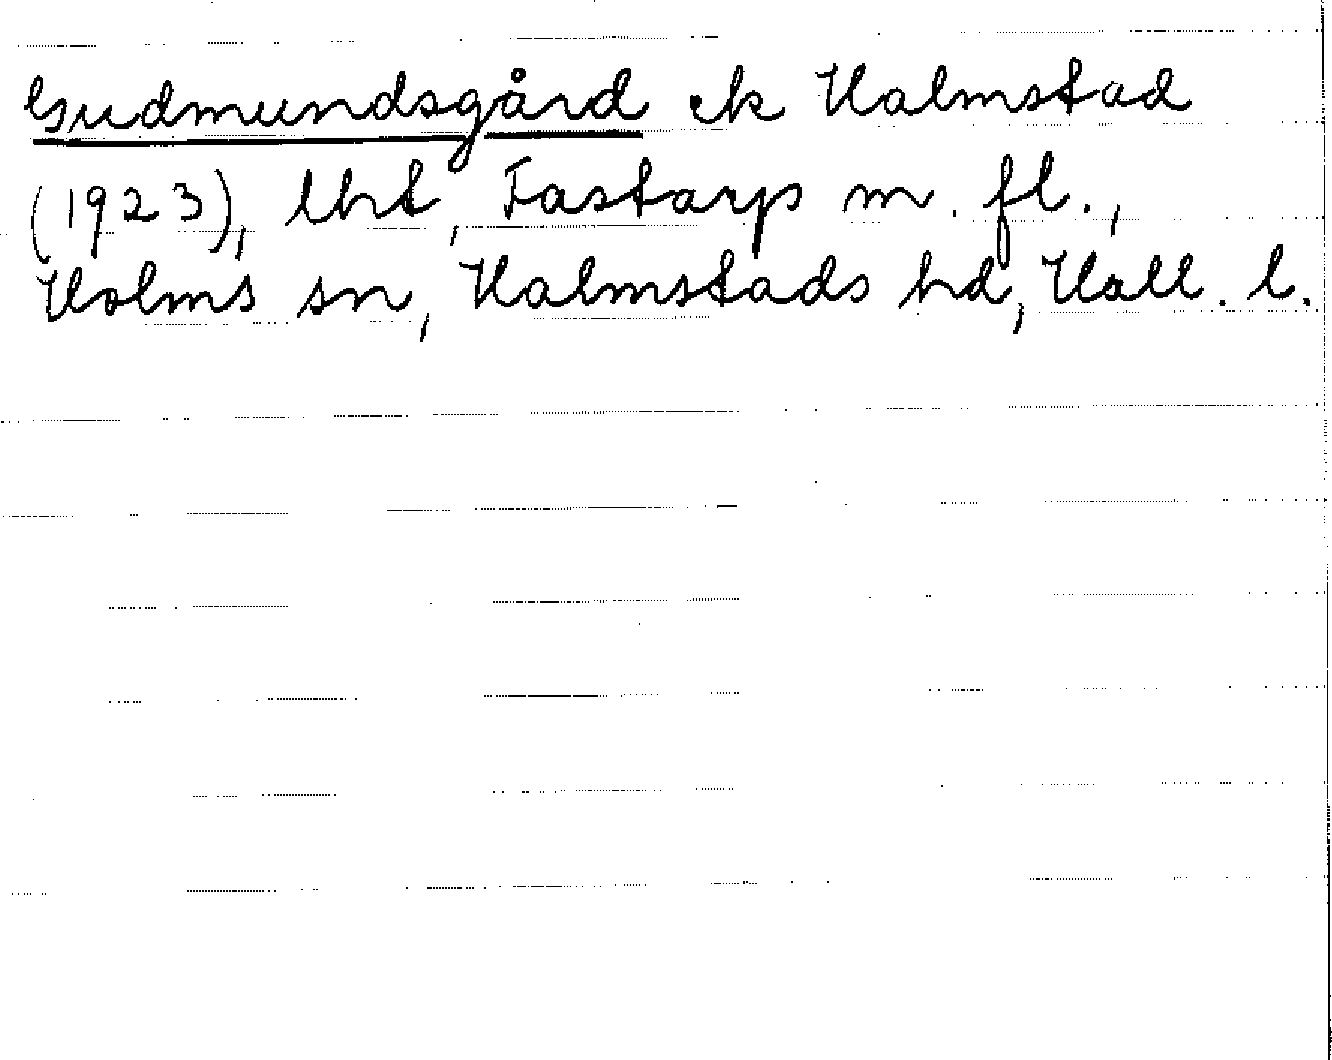 Gudmundsgård ek Halmstad
(1923), lht, Fastarp m. fl.,
Holms sn, Halmstads hd, Hall. l.